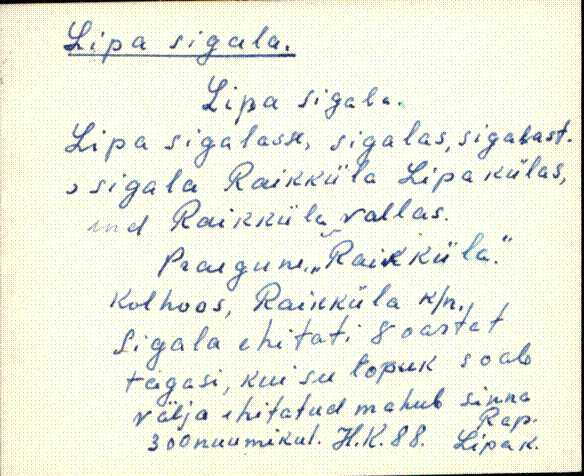 Lipa sigala.
Lipa sigala.
Lipa sigalasse, sigalas, sigalast.
, sigala Raikküla Lipa külas,
end Raikküla vallas.
Praegune „Raikküla."
Kolhoos, Raikküla k/n.,
Sigala ehitati 8 aastat
tagasi, kui su lõpuk saab
välja ehitatud mahub sinna
300 nuumikut. H.K. 88. Rap. Lipa k.